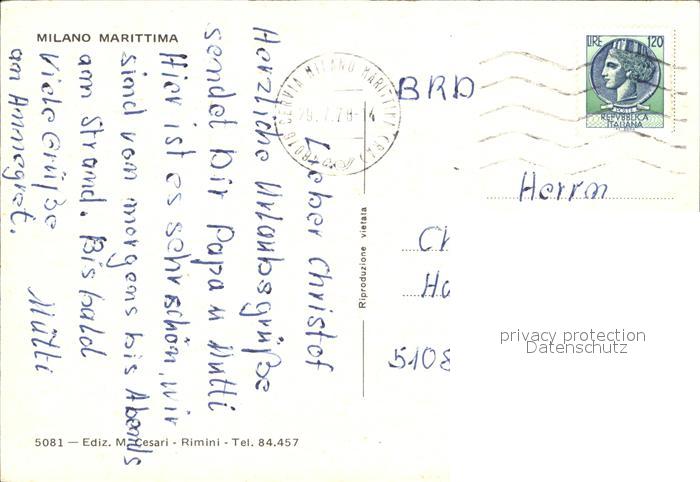 MILANO MARITTIMA
Lieber Christof
Herzliche Urlaubsgrüße
sendet dir Papa u Mutti
Hier ist es sehr schön, wir
sind von morgens bis Abends
am Strand. Bis bald
Viele Grüße Mutti
am Annegret.
5081 — Ediz. M. Cesari - Rimini - Tel. 84.457
Riproduzione vietata
CERVIA MILANO MARITTIMA (RA)
LIRE 120
POSTE
REPVBBLICA
ITALIANA
BRD
Herrn
Ch
Ha
5108
privacy protection
Datenschutz